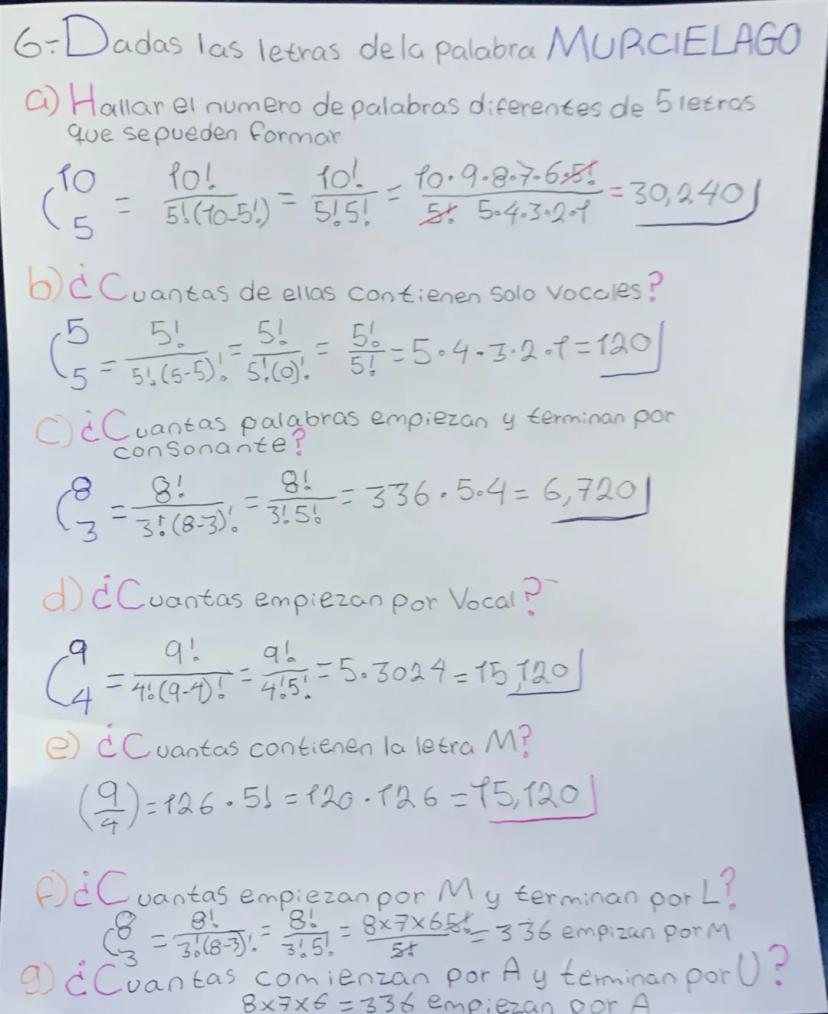 6:- Dadas las letras de la palabra MURCIELAGO
a) Hallar el numero de palabras diferentes de 5 letras
que se pueden formar
C 10 5 = 10! / 5!(10-5!) = 10! / 5!5! = 10·9·8·7·6·5! / 5! 5·4·3·2·1 = 30,240
b) ¿Cuantas de ellas contienen solo vocales?
C 5 5 = 5! / 5!(5-5)! = 5! / 5!(0)! = 5! / 5! = 5·4·3·2·1 = 120
c) ¿Cuantas palabras empiezan y terminan por
consonante?
C 8 3 = 8! / 3!(8-3)! = 8! / 3!5! = 336·5·4 = 6,720
d) ¿Cuantas empiezan por Vocal?
C 9 4 = 9! / 4!(9-4)! = 9! / 4!5! = 5·3024 = 15,120
e) ¿Cuantas contienen la letra M?
(9/4) = 126·5! = 120·126 = 15,120
f) ¿Cuantas empiezan por M y terminan por L?
C 8 3 = 8! / 3!(8-3)! = 8! / 3!5! = 8x7x65! / 5! = 336 empizan por M
g) ¿Cuantas comienzan por A y terminan por U?
8x7x6 = 336 empiezan por A